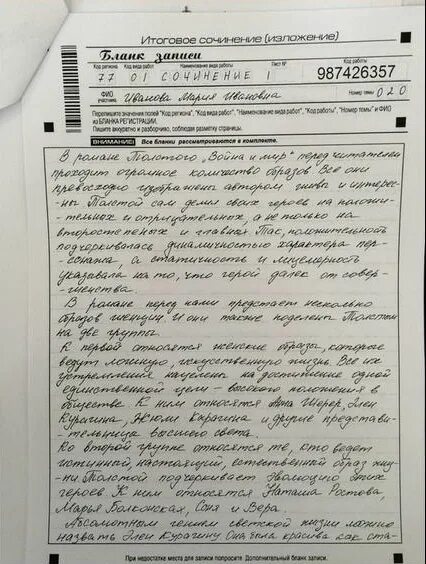 Итоговое сочинение (изложение)
Бланк записи
Код региона Код вида работы Наименование вида работы Лист № Код работы
77 01 СОЧИНЕНИЕ 1 987426357
ФИО участника Иванова Мария Ивановна Номер темы 020
Перепишите значения полей "Код региона", "Код вида работы", "Наименование вида работ", "Код работы", "Номер темы" и ФИО
из БЛАНКА РЕГИСТРАЦИИ.
Пишите аккуратно и разборчиво, соблюдая разметку страницы.
ВНИМАНИЕ! Все бланки рассматриваются в комплекте.
В романе Толстого „Война и мир" перед читателем
проходит огромное количество образов Все они
превосходно изображены автором живы и интерес-
-ны Толстой сам делил своих героев на положи-
-тельных и отрицательных, а не только на
второстепеных и главных Так, положительность
подчоркивалась динамичностью характера пер-
сонажа, а статичность и лицемерность
указывала на то, что герой далек от совер-
-шенства.
В романе перед нами предстает несколько
образов женщин. И они также поделены Толстым
на две группы.
К первой относятся женские образы, которые
ведут ложную, искусственную жизнь. Все их
устремления нацелены на достижение одной
единственной цели – высокого положения в
обществе. К ним относят Анна Шерер, Элен
Курагина, Жюли Карагина и другие представи-
-тельница высшего света.
Ко второй группе относятся те, кто ведет
истинный, настоящий, естественный образ жиз-
-ни Толстой подчеркивает эволюцию этих
героев К ним относятся Наташа Ростова,
Марья Болконская, Соня и Вера.
Абсолютным гением светской жизни можно
назвать Элен Курагину Она была красива как ста-
При недостатке места для записи попросите Дополнительный бланк записи.